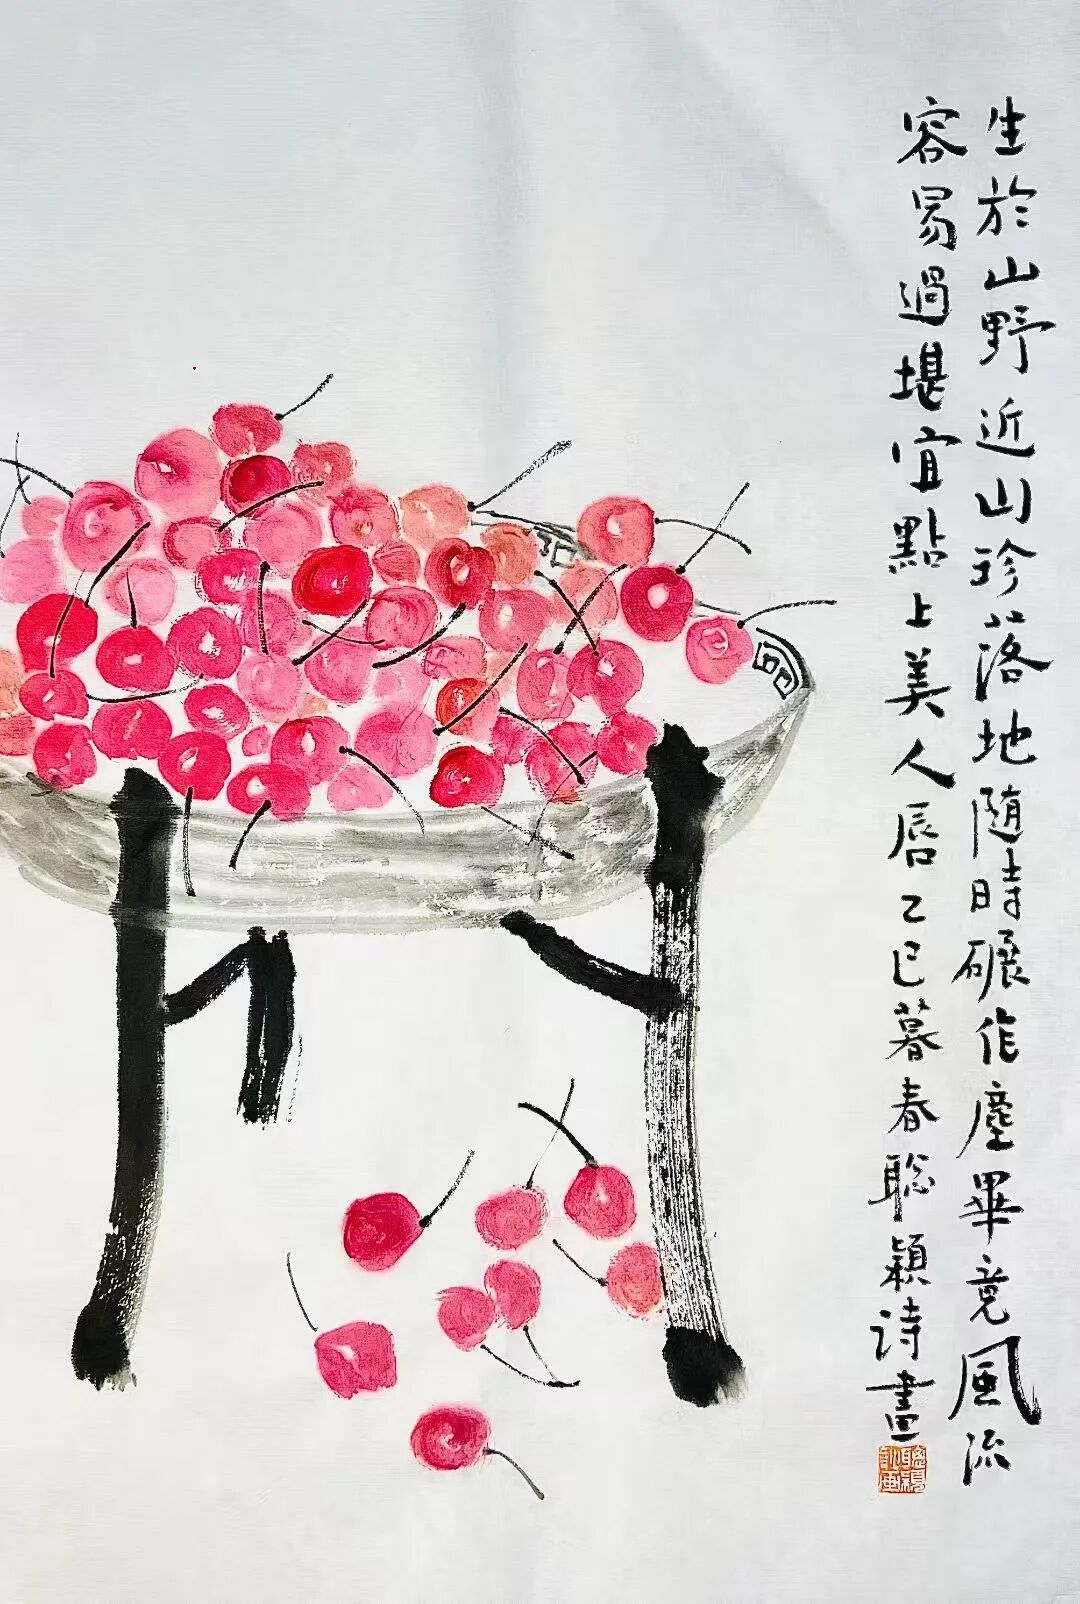 生於山野近山珍落地隨時碾作塵畢竟風流
容易過堪宜點上美人唇乙巳暮春聪颖诗畫